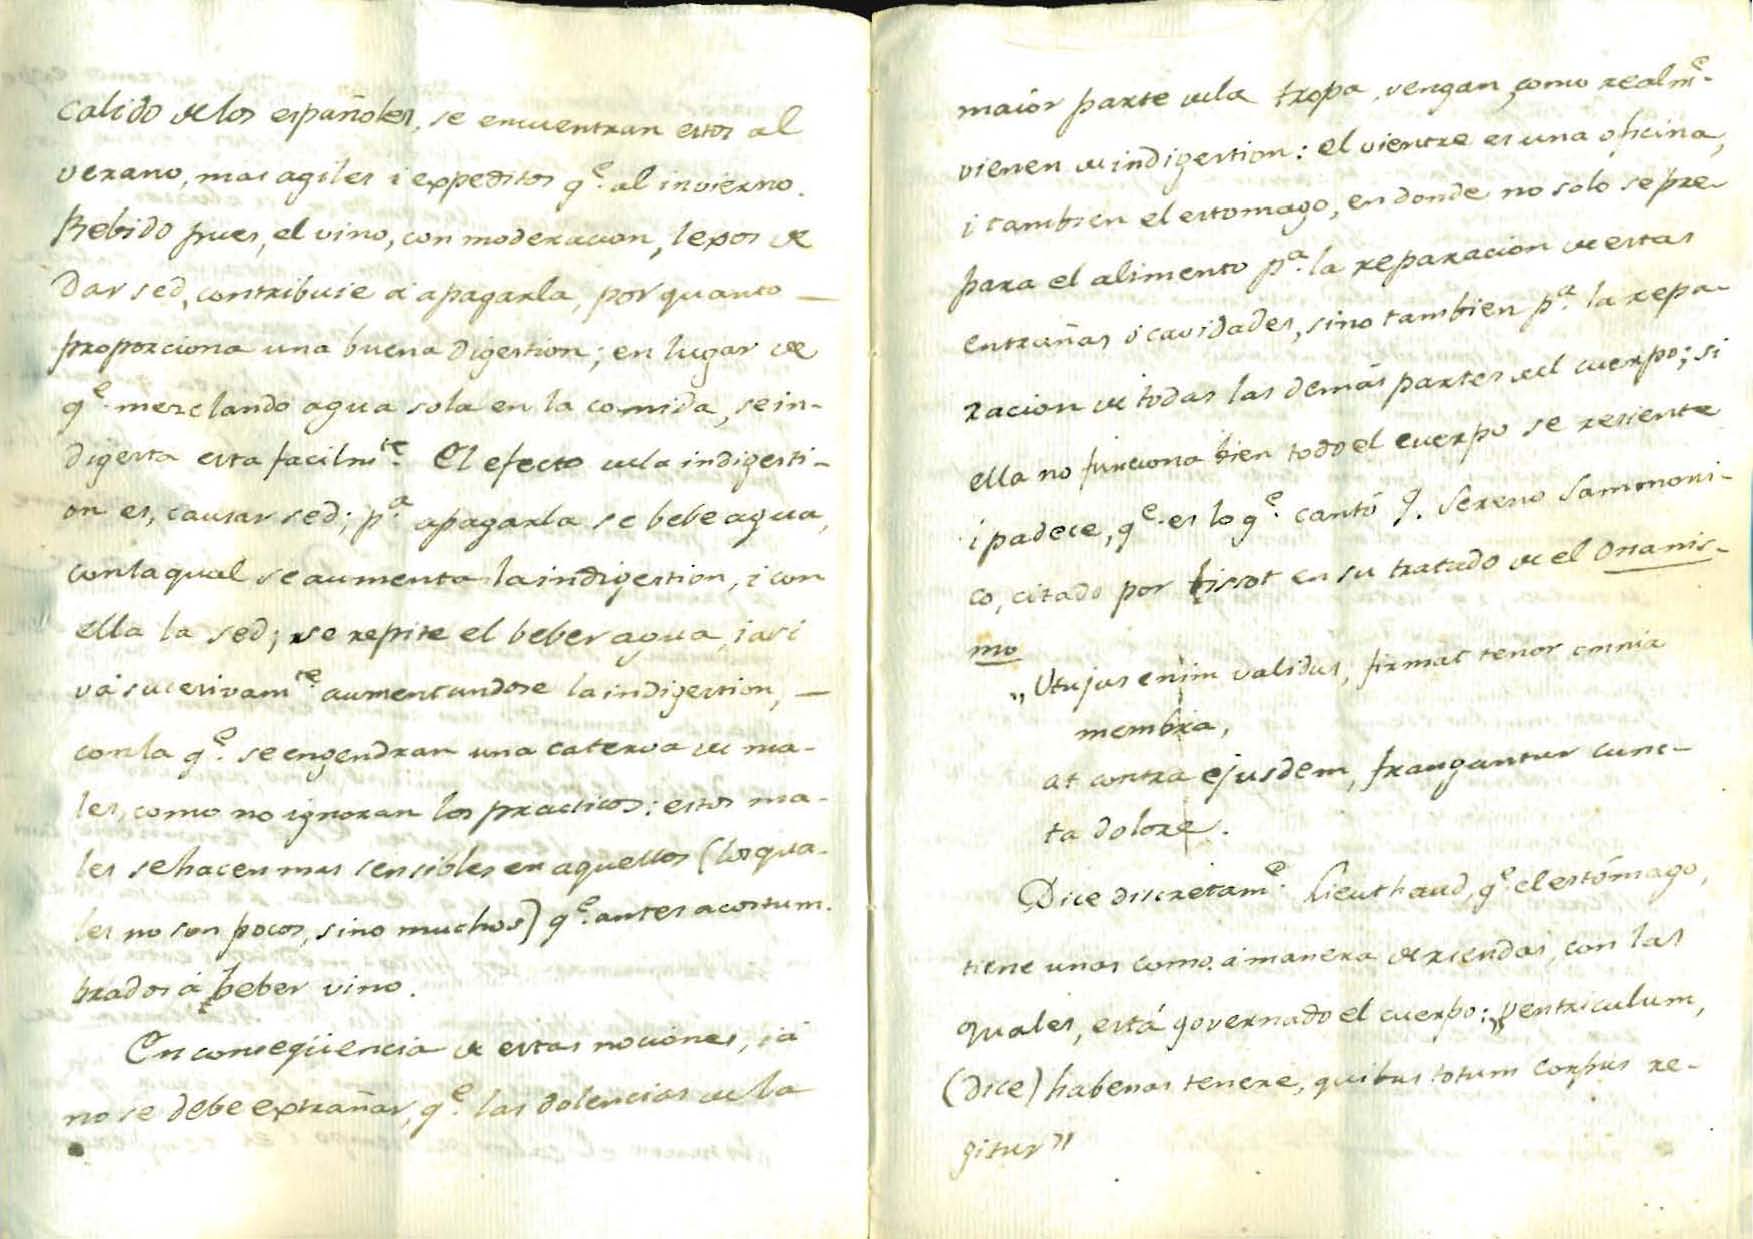 calido de los españoles, se encuentran estos al
verano, mas agiles i expeditos q.e al invierno.
Bebido pues, el vino, con moderacion, lexos de
dar sed, contribuie á apagarla, por quanto —
proporciona una buena digestion; en lugar de
q.e mezclando agua sola en la comida, se in-
digesta esta facilm.te El efecto de la indigesti-
on es, causar sed; p.a apagarla se bebe agua,
con la qual se aumenta la indigestion, i con
ella la sed; se repite el beber agua, i asi
vá sucesivam.te aumentandose la indigestion, —
con la q.e se engendran una caterva de ma-
les, como no ignoran los practicos: estos ma-
les se hacen mas sensibles en aquellos (los qua-
les no son pocos, sino muchos) q.e antes acostum-
brados á beber vino.
En conseqüencia de estas nociones, iá
no se debe extrañar, q.e las dolencias de la
maior parte de la tropa, vengan como realm.e
vienen de indigestion: el vientre es una oficina,
i tambien el estomago, en donde no solo se pre-
para el alimento p.a la reparacion de estas
entrañas ó cavidades, sino tambien p.a la repa-
racion de todas las demás partes del cuerpo; si
ella no funciona bien todo el cuerpo se resiente
i padece, q.e es lo q.e cantó Q. Sereno Sammoni-
co, citado por tissot en su tratado de el Onanis-
mo
„Utujus enim validus, firmat tenor omnia
membra,
at contra ejusdem, frangantur cunc-
ta dolore.
Dice discretam.e Lieuthaud, q.e el estómago,
tiene unas como á manera de riendas, con las
quales, está governado el cuerpo: „ventriculum,
(dice) habenas tenere, quibus totum corpus re-
gitur"